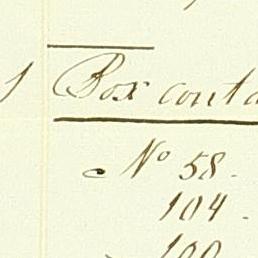 1 Box conta
No 58.
104.
100